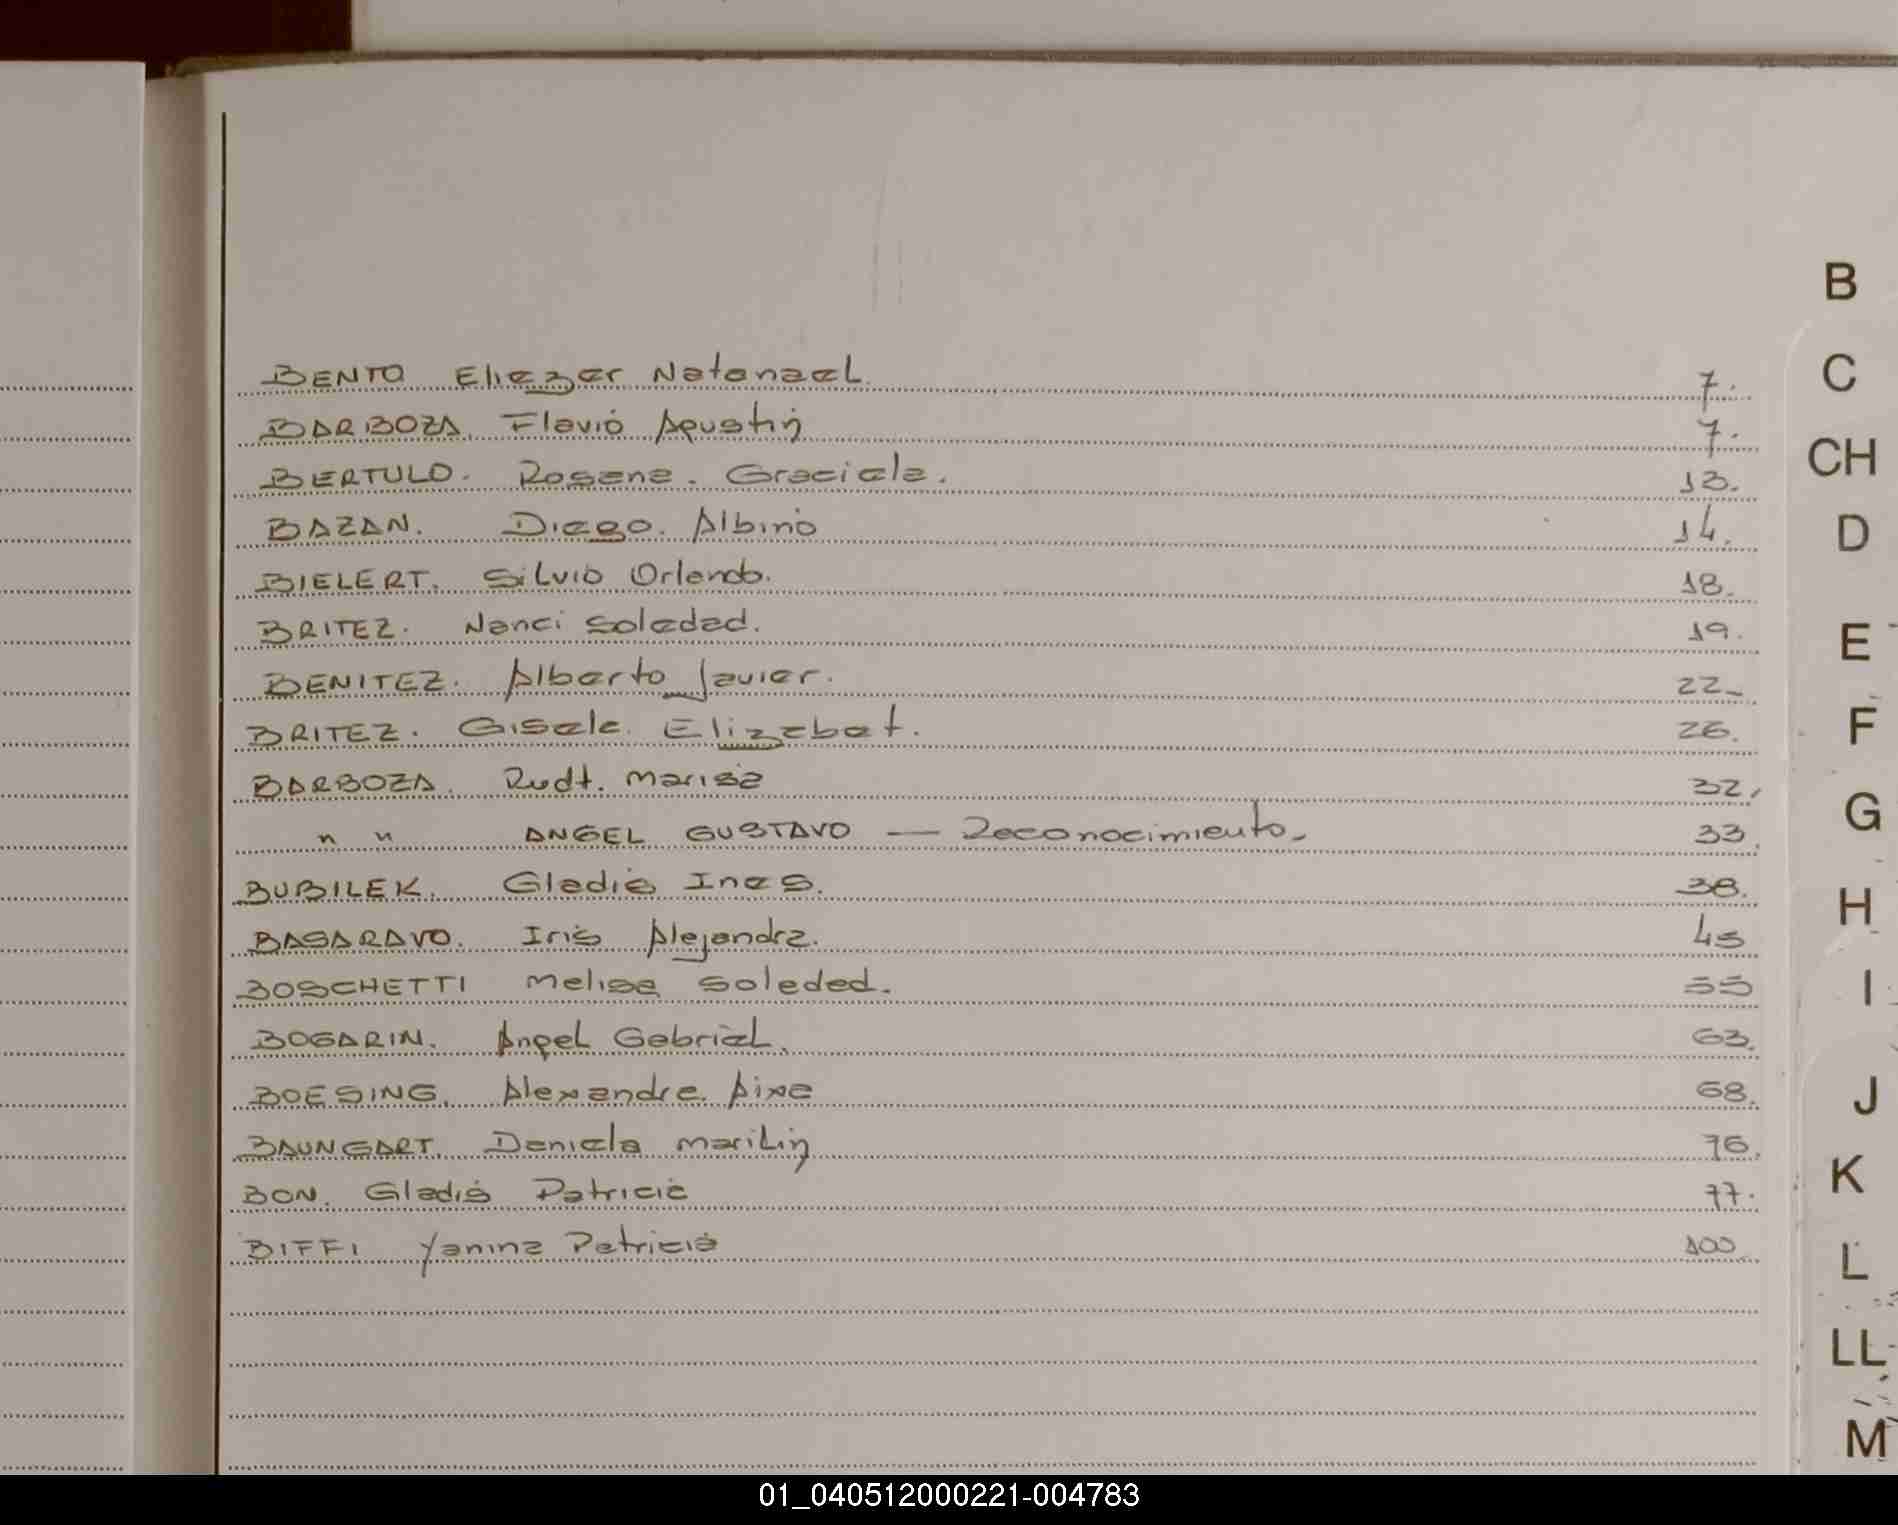 BENTO Eliezer Natanael. 7.
BARBOZA. Flavio Agustin 7.
BERTULO. Rosana. Graciela. 13.
BAZAN. Diego. Albino 14.
BIELERT. Silvio Orlando. 18.
BRITEZ. Nanci Soledad. 19.
BENITEZ. Alberto Javier. 22_
BRITEZ. Gisele. Elizabet. 26.
BARBOZA. Rudt. Marisa 32.
" " ANGEL GUSTAVO — Reconocimiento_ 33.
BUBILEK. Gladis Ines. 38.
BASARAVO. Iris Alejandra. 45
BOSCHETTI Melisa Soledad. 55
BOGARIN. Angel Gabriel. 63.
BOESING. Alexandre. Aixa 68.
BAUNGART. Daniela Marilin 76.
BON. Gladis Patricia 77.
BIFFI Yanina Patricia 100.
B
C
CH
D
E
F
G
H
I
J
K
L
LL
M
01_040512000221-004783